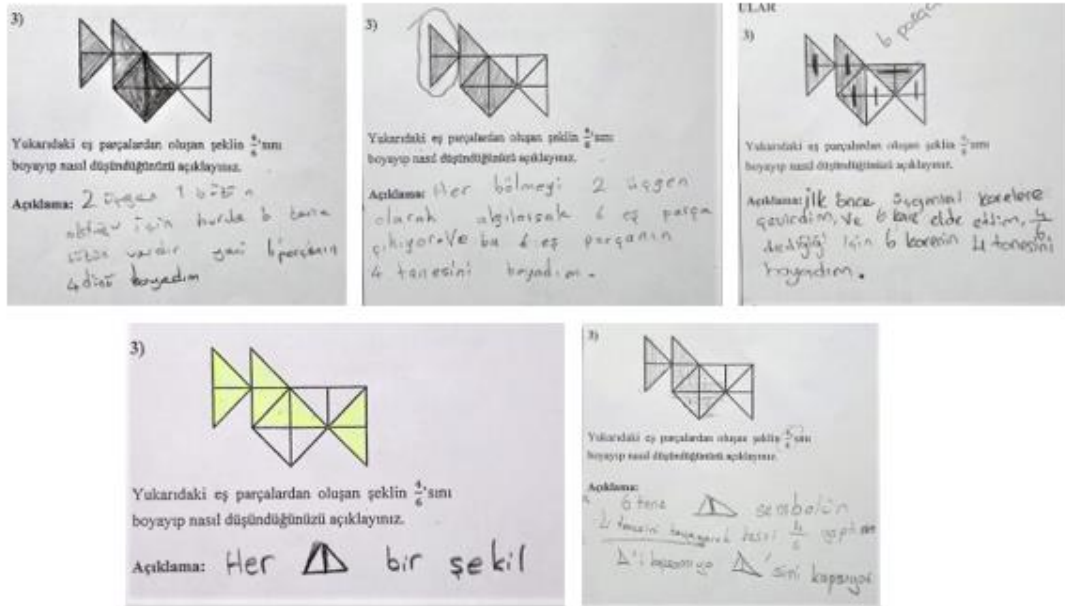 3)
Yukarıdaki eş parçalardan oluşan şeklin 4/6'sını
boyayıp nasıl düşündüğünüzü açıklayınız.
Açıklama: 2 üçgen 1 bütün
olduğu için burda 6 tane
bütün vardır yani 6 parçanın
4 dünü boyadım
3)
Yukarıdaki eş parçalardan oluşan şeklin 4/6'sını
boyayıp nasıl düşündüğünüzü açıklayınız.
Açıklama: Her bölmeyi 2 üçgen
olarak algılarsak 6 eş parça
çıkıyor. Ve bu 6 eş parçanın
4 tanesini boyadım.
ULAR
3)
6 parça
Yukarıdaki eş parçalardan oluşan şeklin 4/6'sını
boyayıp nasıl düşündüğünüzü açıklayınız.
Açıklama: ilk önce üçgenleri karelere
çevirdim, ve 6 kare elde ettim, 4/6
dediği için 6 karenin 4 tanesini
boyadım.
3)
Yukarıdaki eş parçalardan oluşan şeklin 4/6'sını
boyayıp nasıl düşündüğünüzü açıklayınız.
Açıklama: Her bir şekil
3)
Yukarıdaki eş parçalardan oluşan şeklin 4/6'sını
boyayıp nasıl düşündüğünüzü açıklayınız.
Açıklama:
6 tane sembolün
4 tanesini boyayarak 4/6 yaptım
'sini kapsıyor